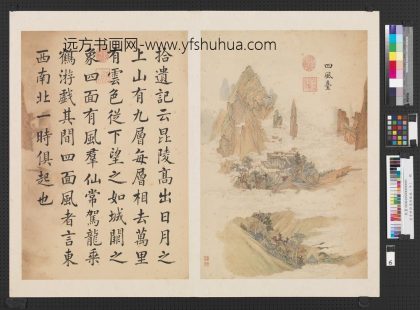 远方书画网-www.yfshuhua.com
拾遺記云昆陵高出日月之
上山有九層每層相去萬里
有雲色從下望之如城闕之
象四面有風羣仙常駕龍乘
鶴游戲其間四面風者言東
西南北一時俱起也
四風臺